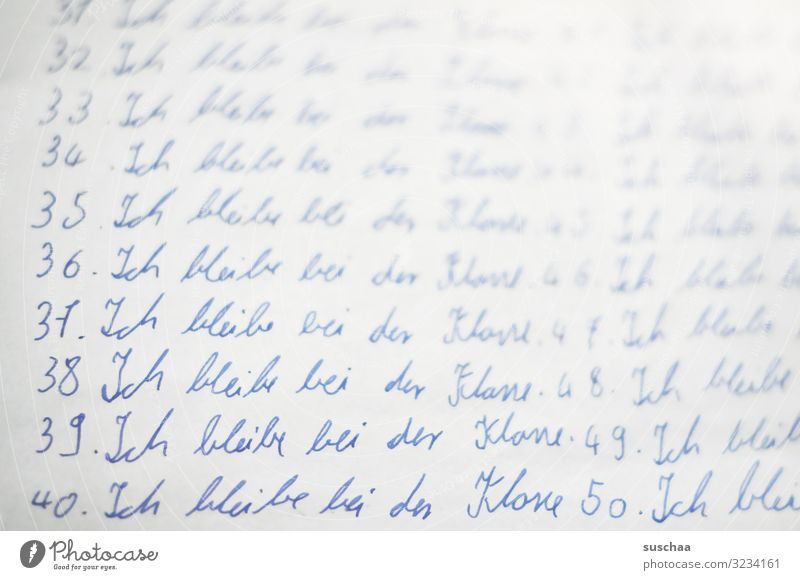 31 Ich bleibe bei der Klasse
32 Ich bleibe bei der Klasse
33 Ich bleibe bei der Klasse 43. Ich bleibe
34. Ich bleibe bei der Klasse 44. Ich bleibe
35 Ich bleibe bei der Klasse. 45. Ich bleibe
36. Ich bleibe bei der Klasse. 46. Ich bleibe
37. Ich bleibe bei der Klasse. 47. Ich bleibe
38 Ich bleibe bei der Klasse. 48. Ich bleibe
39. Ich bleibe bei der Klasse. 49. Ich bleib
40. Ich bleibe bei der Klasse 50. Ich blei
PHOTOCASE
Good for your eyes.
suschaa
PHOTOCASE.COM/3234161